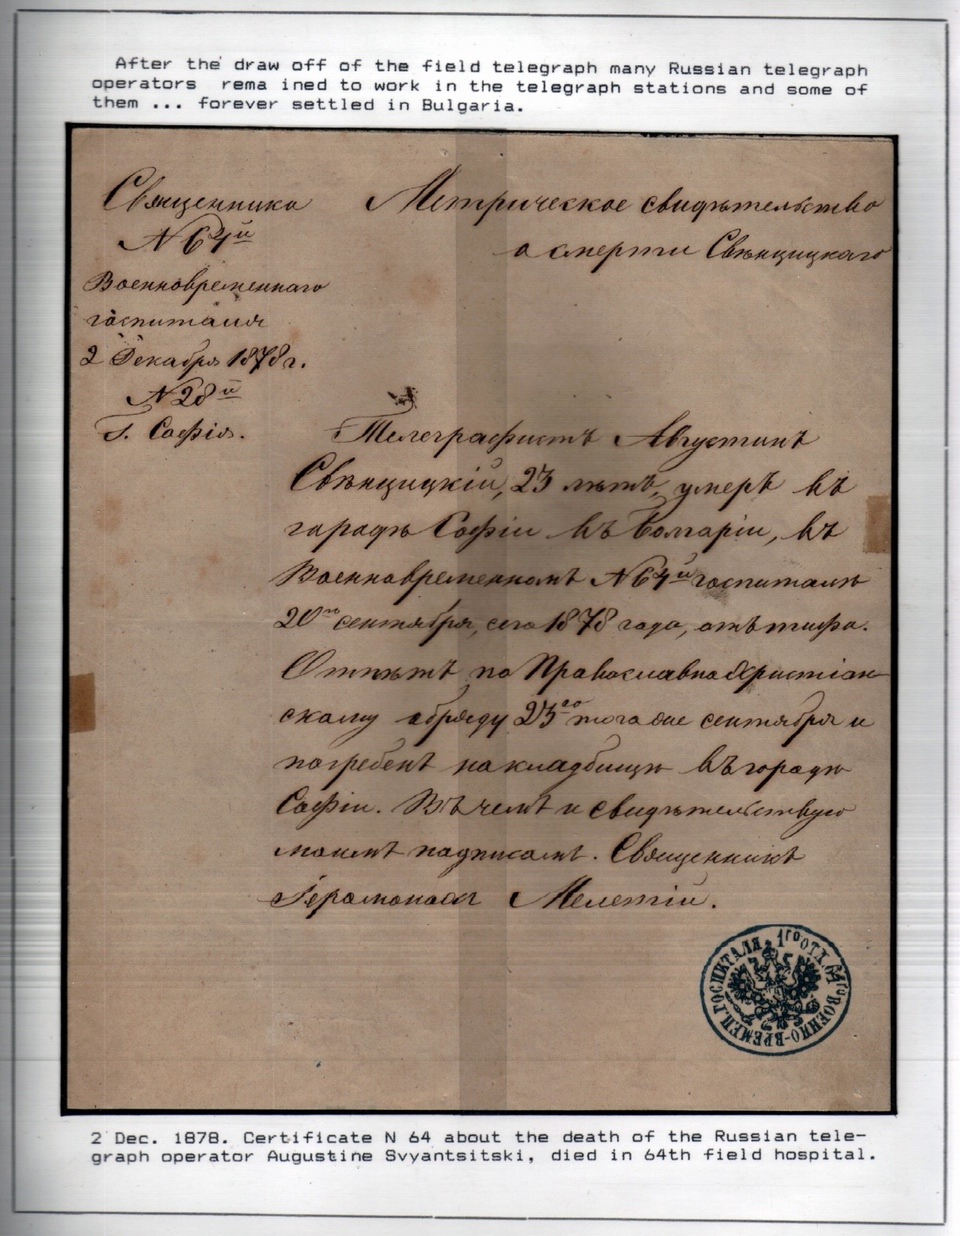 After the draw off of the field telegraph many Russian telegraph
operators rema ined to work in the telegraph stations and some of
them ... forever settled in Bulgaria.
Священника
N 64й
Военновременнаго
госпиталя
2 Декабря 1878 г.
N 28й
г. Софія.
Метрическое свидѣтельство
о смерти Свѣнцицкаго
Телеграфистъ Августинъ
Свѣнцицкій, 23 лѣтъ, умеръ въ
городѣ Софіи въ Болгаріи, въ
Военновременномъ N 64й госпиталѣ
20го сентября, сего 1878 года, отъ тифа.
Отпѣтъ по Православно Христіан-
скому обряду 23го того же сентября и
погребенъ на кладбищѣ въ городѣ
Софіи. Въ чемъ и свидѣтельствую
моимъ подписомъ. Священникъ
Іеромонахъ Мелетій.
1го ОТД. 64го ВОЕННО-ВРЕМЕН. ГОСПИТАЛЯ
2 Dec. 1878. Certificate N 64 about the death of the Russian tele-
graph operator Augustine Svyantsitski, died in 64th field hospital.